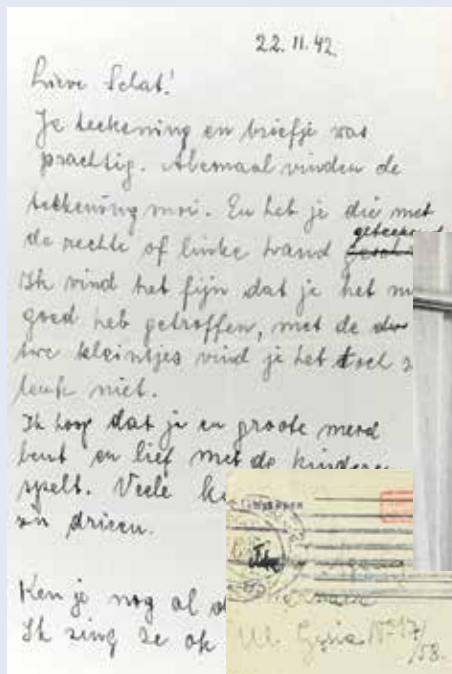 22.11.42.
Lieve Schat!
Je teekening en briefje was
prachtig. Alemaal vinden de
tekkening moi. En heb je die met
de rechte of linke hand
Ik vind het fijn dat je het
goed heb getroffen, met de
twe kleintjes vind je het toch
leuk niet.
Ik hoop dat je en groote meid
bent en lief met de kindere
spelt. Veele
en drieen.
Ken je nog al
Ik zing ze ok
Ul. Gęsia No 17/
/58.